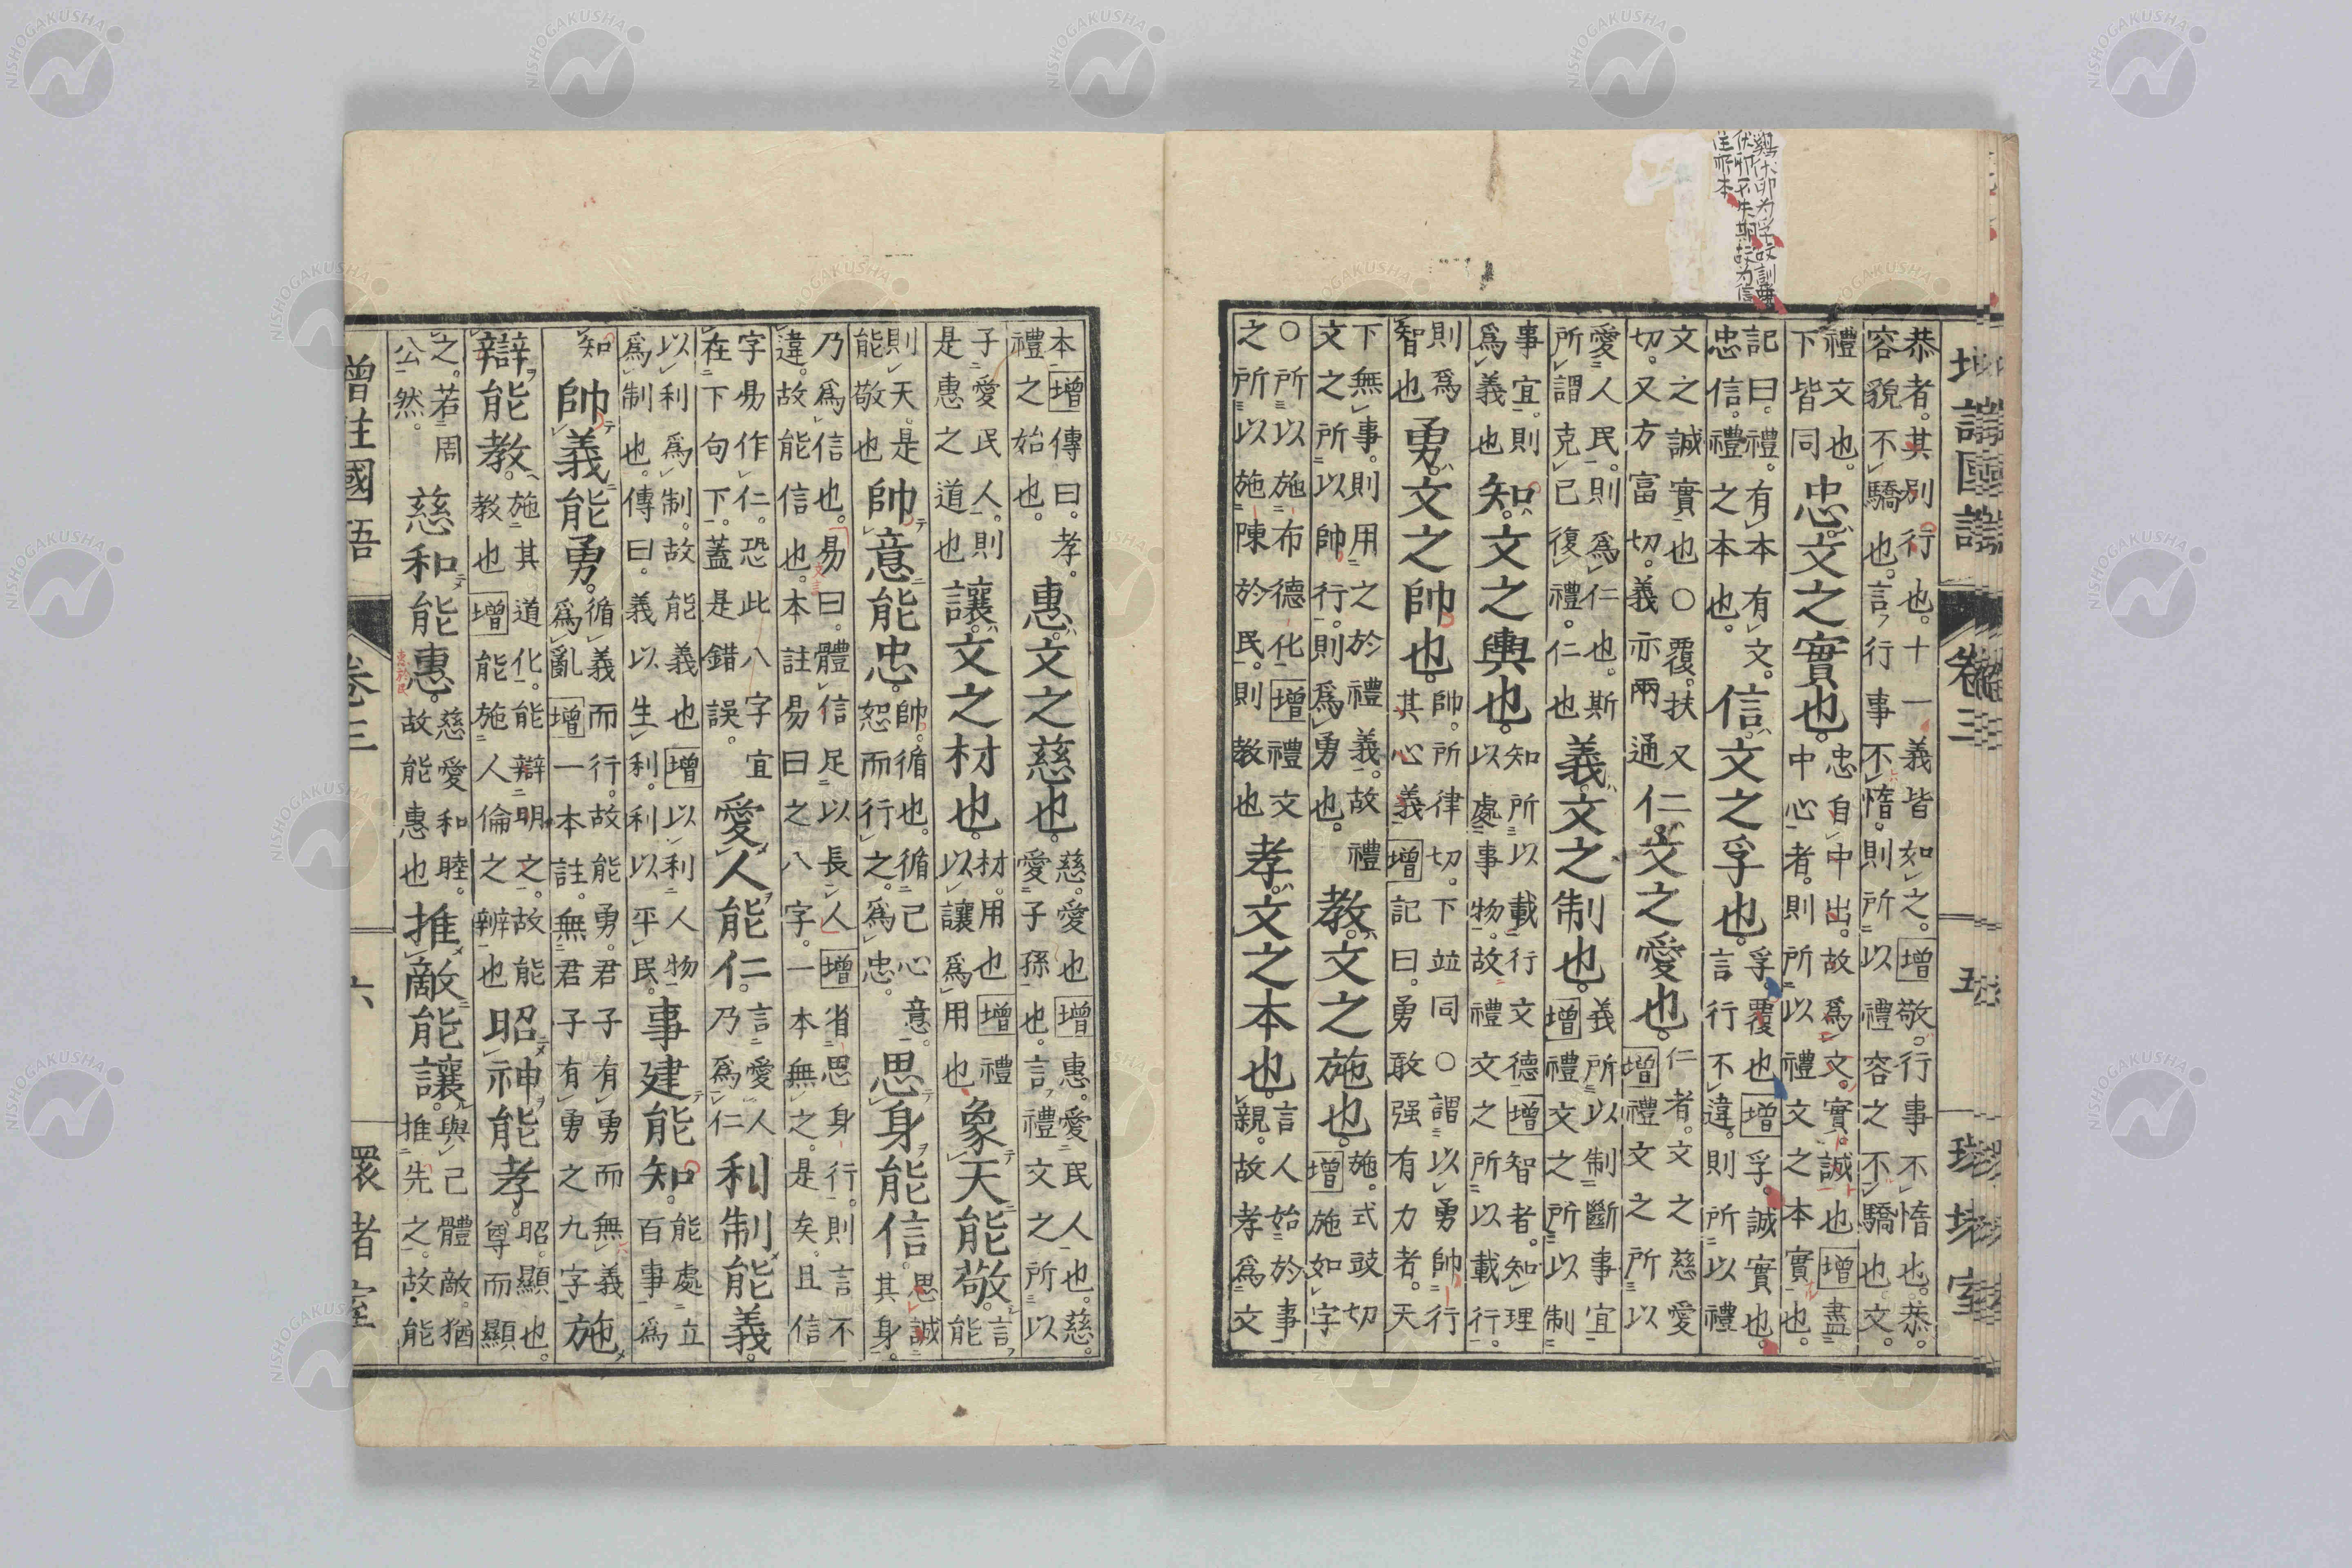 鷄伏卵为孚故訓覆
伏卵不失期故为信
注亦本
卷三
恭者。其別行也。十一義皆如之。增敬。行事不惰也。恭。
容貌不驕也。言行事不惰。則所以禮容之不驕也。文。
禮文也。
下皆同
忠。文之實也。
忠自中出。故爲文。實。誠也。增盡
中心者。則所以禮文之本實也。
記曰。禮。有本有文。
忠信。禮之本也。
信。文之孚也。
孚。覆也。增孚。誠實也。
言行不違。則所以禮
文之誠實也○覆。扶又
切。又方富切。義亦兩通
仁。文之愛也。
仁者。文之慈愛
增禮文之所以
愛人民。則爲仁也。斯
所謂克己復禮。仁也
義。文之制也。
義所以制斷事宜
增禮文之所以制
事宜。則
爲義也
知。文之輿也。
知所以載行文德增智者。知理
以處事物。故禮文之所以載行
則爲
智也
勇。文之帥也。
帥。所律切。下並同○謂以勇帥行
其心義增記曰。勇敢强有力者。天
下無事。則用之於禮義。故禮
文之所以帥行。則爲勇也。
教。文之施也。
施。式豉切
增施如字
○所以施布德化增禮文
之所以施陳於民。則教也
孝。文之本也。
言人始於事
親。故孝爲文
本增傳曰。孝。
禮之始也。
惠。文之慈也。
慈。愛也增惠。愛民人也。慈。
愛子孫也。言禮文之所以
子愛民人。則
是惠之道也
讓。文之材也。
材。用也增禮
以讓爲用也
象天能敬。
言
能
則天。是
能敬也
帥意能忠。
帥。循也。循己心意。
恕而行之。爲忠。
思身能信。
思誠
其身。
乃爲信也。易曰。體信足以長人增省思身行。則言不
違。故能信也。本註易曰之八字。一本無之。是矣。且信
字易作仁。恐此八字宜
在下句下。蓋是錯誤。
愛人能仁。
言愛人
乃爲仁
利制能義。
以利爲制。故能義也增以利人物
爲制也。傳曰。義以生利。利以平民。
事建能知。
能處立
百事爲
知
帥義能勇。
循義而行。故能勇。君子有勇而無義
爲亂增一本註。無君子有勇之九字
施
辯能教。
施其道化。能辯明之。故能
教也增能施人倫之辨也
昭神能孝。
昭。顯也。
尊而顯
之。若周
公然。
慈和能惠。
慈愛和睦。
故能惠也
惠於民
推敵能讓。
與己體敵。猶
推先之。故能
增註國語 卷三 六 環堵室
NISHOGAKUSHA